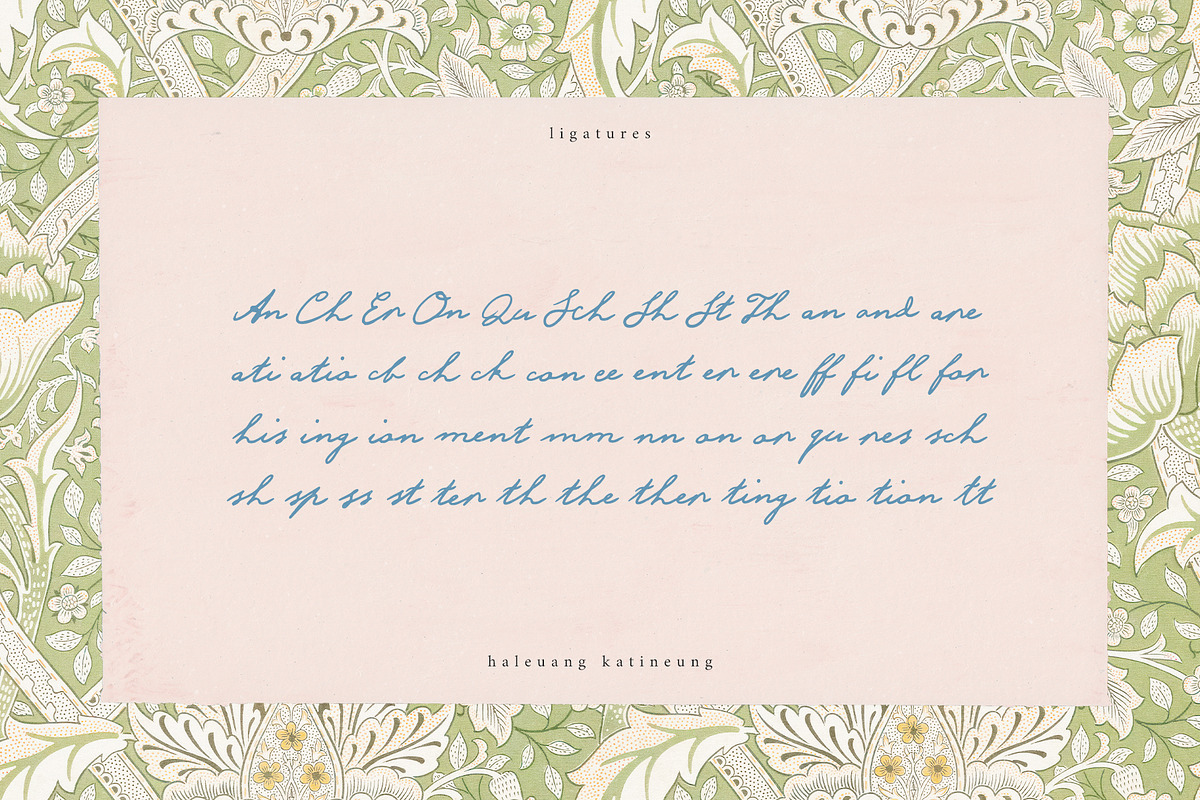 ligatures
An Ch Er On Qu Sch Sh St Th an and are
ati atio cb ch ck con ee ent er ere ff fi fl for
his ing ion ment mm nn on or qu res sch
sh sp ss st ter th the ther ting tio tion tt
haleuang katineung